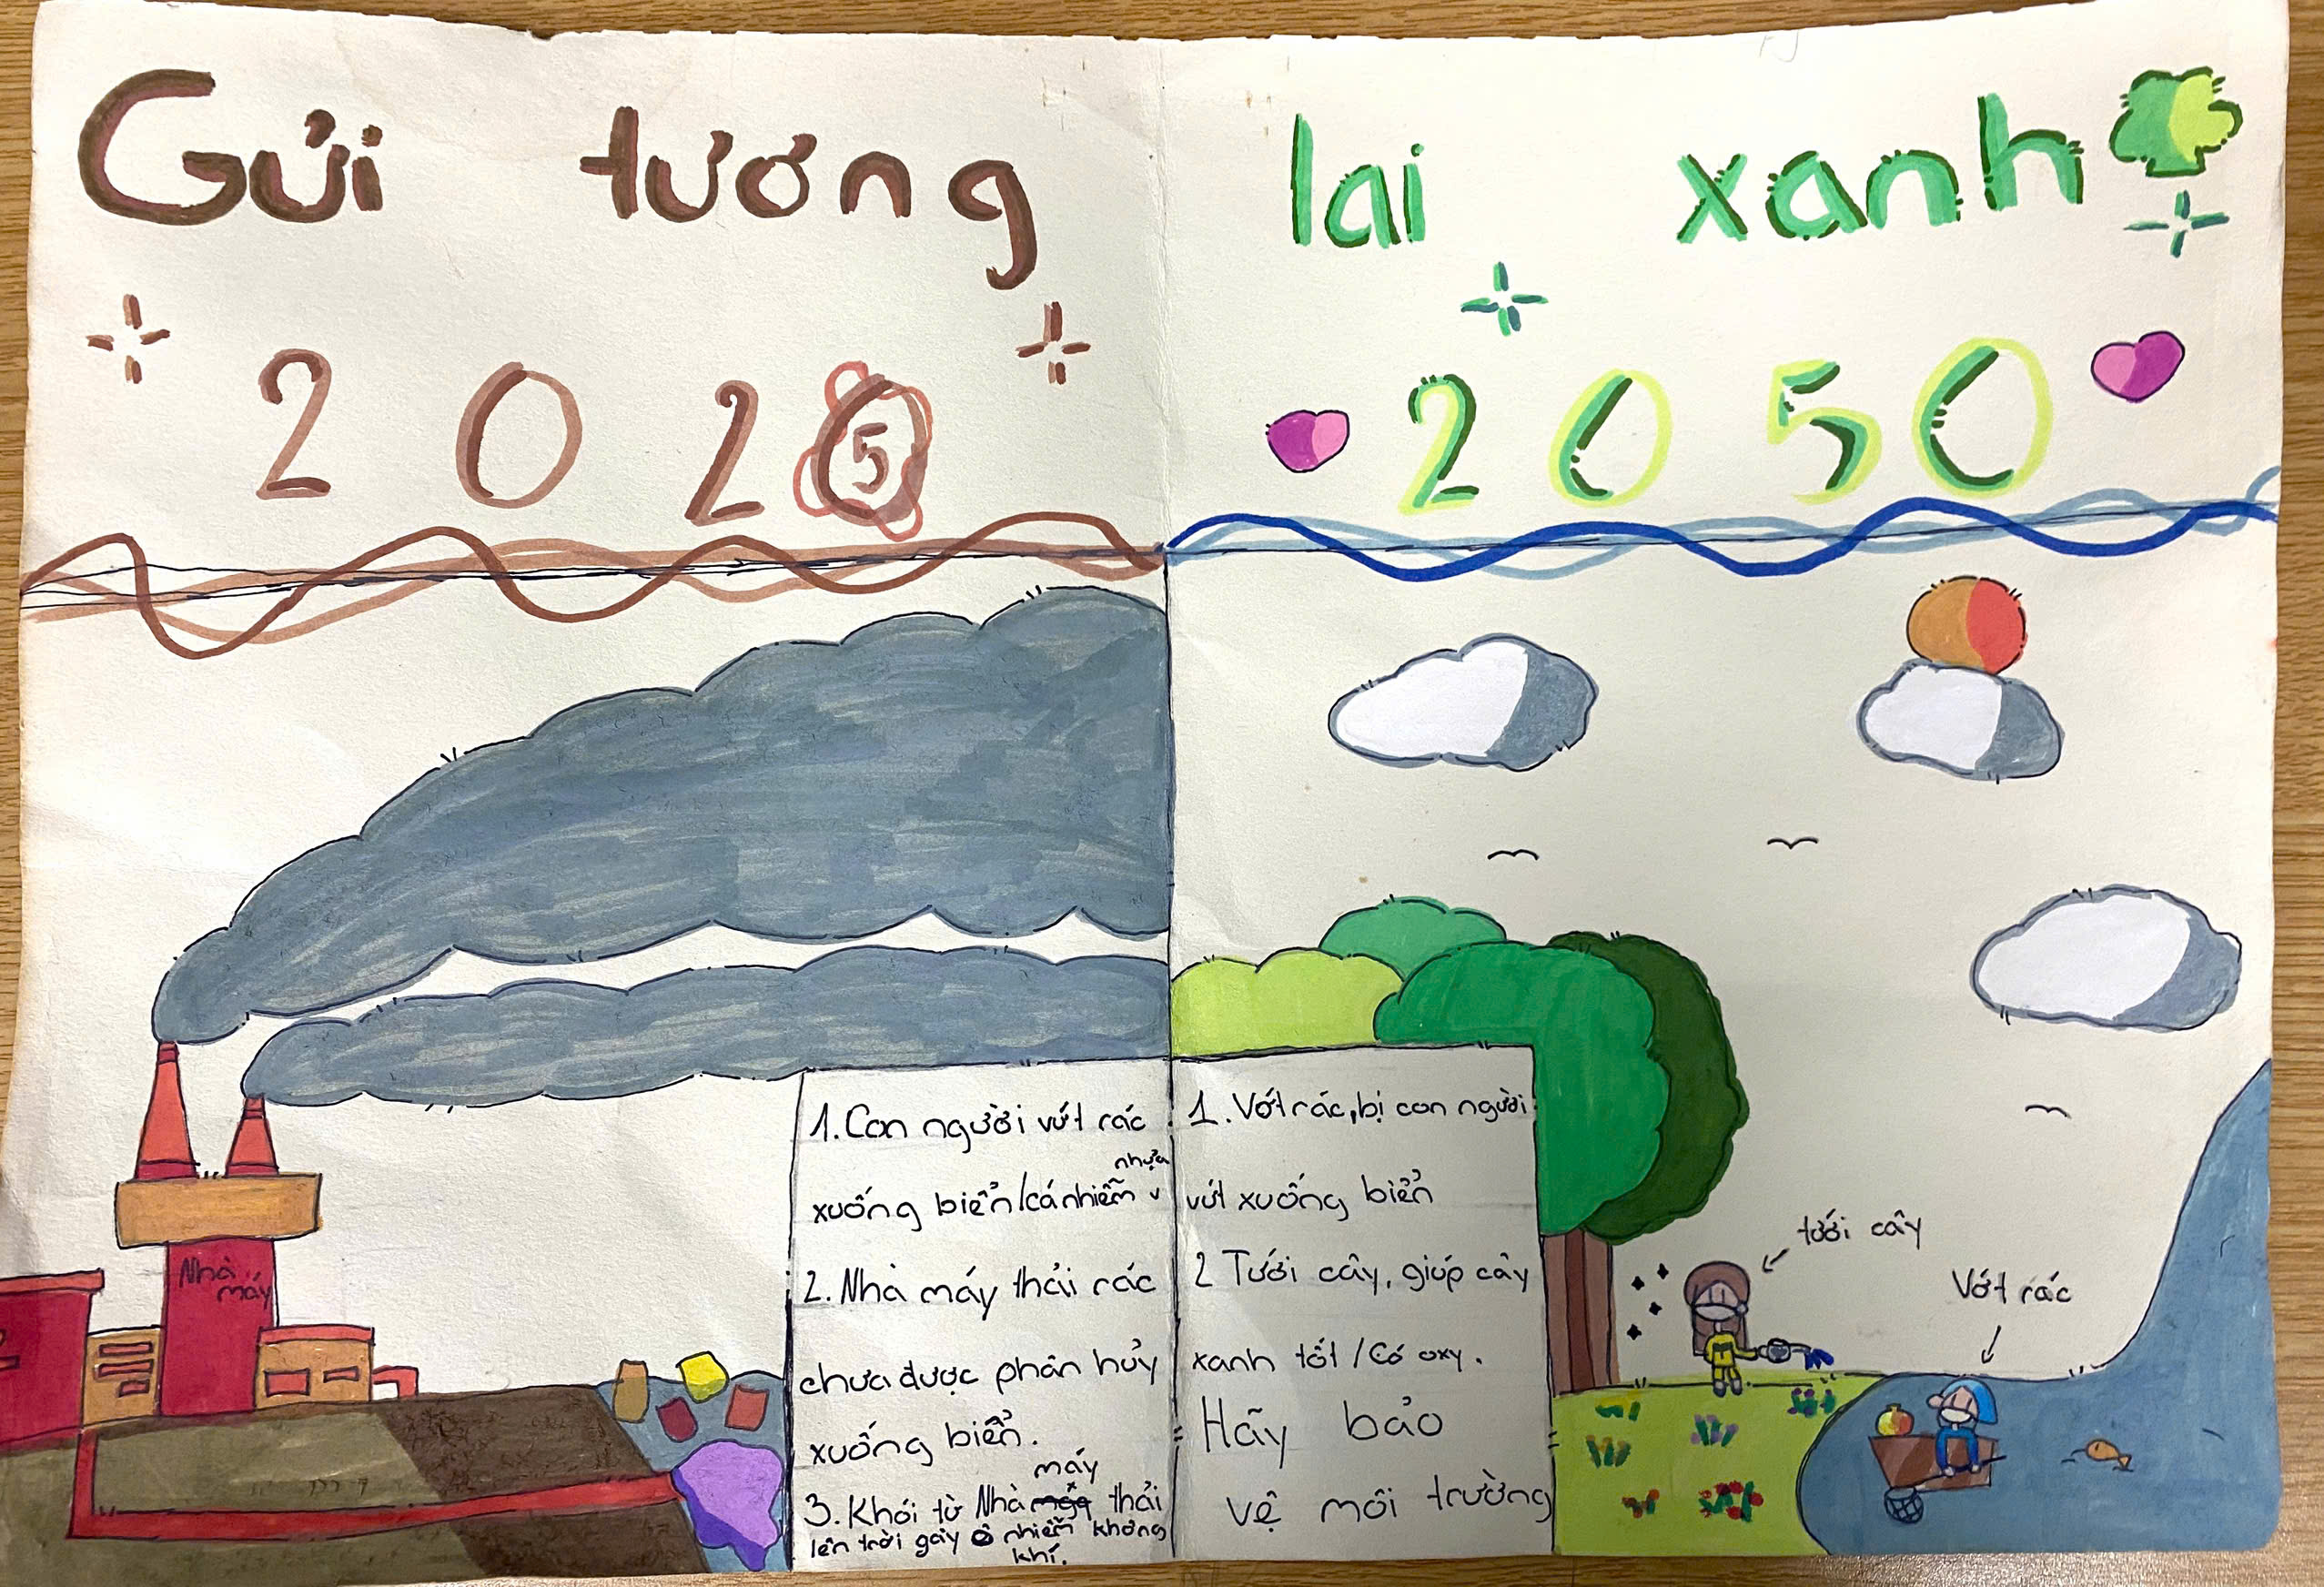 Gửi tương lai xanh
2025 2050
Nhà
máy
1. Con người vứt rác
xuống biển/cá nhiễm nhựa
2. Nhà máy thải rác
chưa được phân hủy
xuống biển.
3. Khói từ Nhà máy thải
lên trời gây ô nhiễm không
khí.
1. Vớt rác, bị con người
vứt xuống biển
2 Tưới cây, giúp cây
xanh tốt / Có oxy.
Hãy bảo
vệ môi trường
tưới cây
Vớt rác